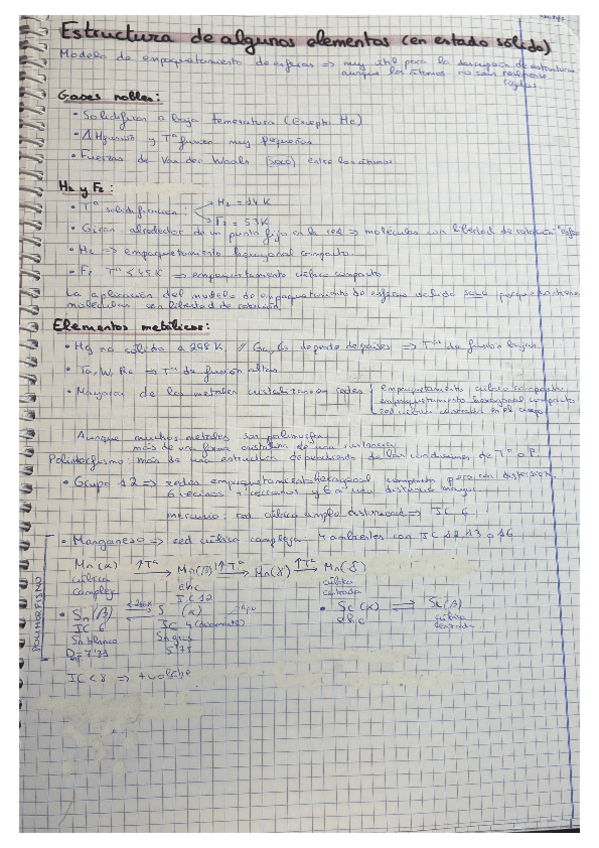 Estructura de algunos elementos (en estado sólido)
Modelo de empaquetamiento de esferas => muy útil para la descripción de estructuras
aunque los átomos no sean realmente
rígidos
Gases nobles:
• Solidifican a baja temperatura (Excepto He)
• ΔHfusión y Tª fusión muy pequeñas
• Fuerzas de Van der Waals (solo) entre los átomos
H₂ y F₂:
• Tª solidificación: H₂ = 14 K
F₂ = 53K
• Giran alrededor de un punto fijo en la red => moléculas con libertad de rotación
• H₂ => empaquetamiento hexagonal compacto
• F₂ Tª < 45K => empaquetamiento cúbico compacto
La aplicación del modelo de empaquetamiento de esferas solo porque
moléculas con libertad de rotación
Elementos metálicos:
• Hg no sólido a 298 K // Ga, Cs depende de países => Tª de fusión bajas
• Ta, W, Re => Tª de fusión altas
• Mayoría de los metales cristalizan en redes empaquetamiento cúbico compacto
empaquetamiento hexagonal compacto
red cúbica centrada en el cuerpo
Aunque muchos metales son polimorfos
más de una forma cristalina de una sustancia
Polimorfismo: más de una estructura dependiendo de las condiciones de Tª o P
• Grupo 12 => redes empaquetamiento hexagonal compacto pero con distorsión
6 vecinos + cercanos y 6 a una distancia mayor
mercurio: red cúbica simple distorsionada => IC 6
• Manganeso => red cúbica compleja 4 ambientes con IC 12, 13 o 16
Mn(α) ↑Tª → Mn(β) ↑Tª → Mn(γ) ↑Tª → Mn(δ)
cúbica
compleja
IC 12
cúbica
centrada
POLIMORFISMO
• Sn(β) ⇌ (α)
IC 6
Sn blanco
IC 4 (diamante)
Sn gris
5'75
• Sc(α) ⇌ Sc(β)
cúbica
centrada
IC < 8 =>